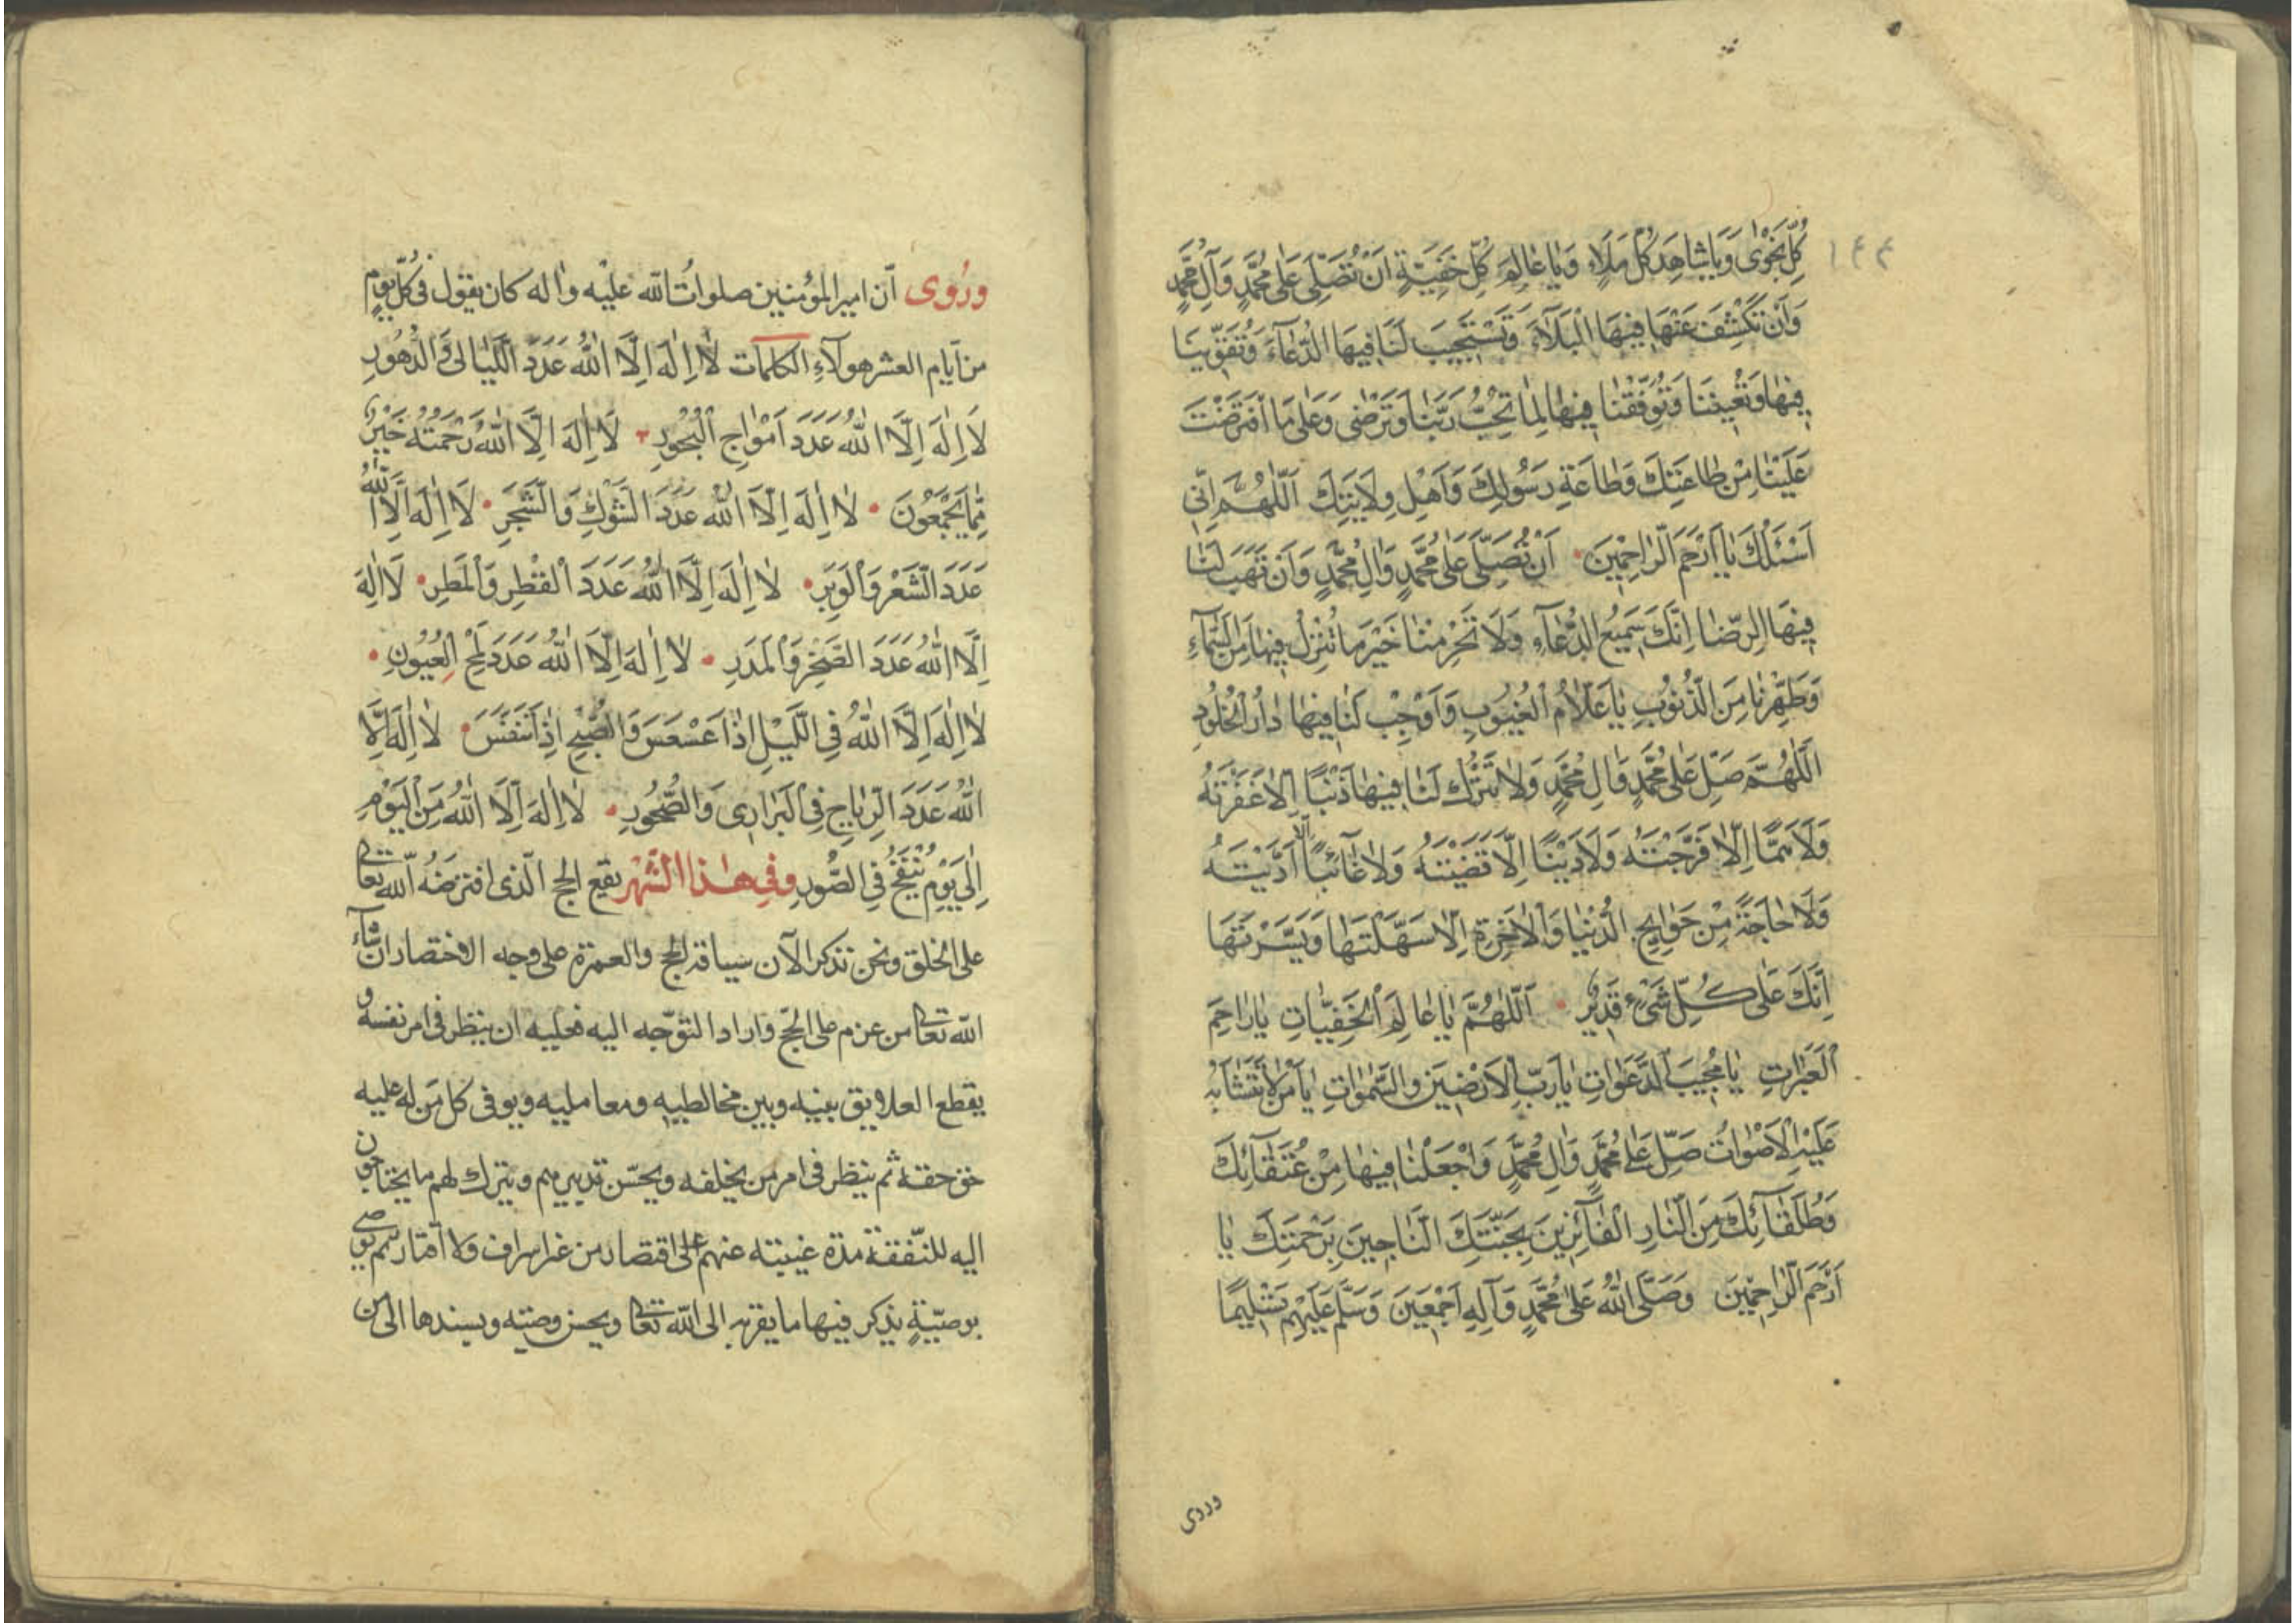 ١٤٤
كُلِّ نَجْوٰى وَيَا شَاهِدَ كُلِّ مَلَاءٍ وَيَا عَالِمَ كُلِّ خَفِيَّةٍ اَنْ تُصَلِّىَ عَلٰى مُحَمَّدٍ وَآلِ مُحَمَّدٍ
وَاَنْ تَكْشِفَ عَنَّا فِيهَا الْبَلَآءَ وَتَسْتَجِيبَ لَنَا فِيهَا الدُّعَآءَ وَتُقَوِّيَنَا
فِيهَا وَتُعِينَنَا وَتُوَفِّقَنَا فِيهَا لِمَا تُحِبُّ رَبَّنَا وَتَرْضٰى وَعَلٰى مَا افْتَرَضْتَ
عَلَيْنَا مِنْ طَاعَتِكَ وَطَاعَةِ رَسُولِكَ وَاَهْلِ وِلَايَتِكَ اَللّٰهُمَّ اِنِّى
اَسْئَلُكَ يَا اَرْحَمَ الرَّاحِمِينَ اَنْ تُصَلِّىَ عَلٰى مُحَمَّدٍ وَاٰلِ مُحَمَّدٍ وَاَنْ تَهَبَ لَنَا
فِيهَا الرِّضَا اِنَّكَ سَمِيعُ الدُّعَآءِ وَلَا تَحْرِمْنَا خَيْرَ مَا تُنْزِلُ فِيهَا مِنَ السَّمَآءِ
وَطَهِّرْنَا مِنَ الذُّنُوبِ يَا عَلَّامَ الْغُيُوبِ وَاَوْجِبْ لَنَا فِيهَا دَارَ الْخُلُودِ
اَللّٰهُمَّ صَلِّ عَلٰى مُحَمَّدٍ وَاٰلِ مُحَمَّدٍ وَلَا تَتْرُكْ لَنَا فِيهَا ذَنْبًا اِلَّا غَفَرْتَهُ
وَلَا هَمًّا اِلَّا فَرَّجْتَهُ وَلَا دَيْنًا اِلَّا قَضَيْتَهُ وَلَا غَآئِبًا اِلَّا اَدَّيْتَهُ
وَلَا حَاجَةً مِنْ حَوَايِجِ الدُّنْيَا وَالْاٰخِرَةِ اِلَّا سَهَّلْتَهَا وَيَسَّرْتَهَا
اِنَّكَ عَلٰى كُلِّ شَىْءٍ قَدِيرٌ اَللّٰهُمَّ يَا عَالِمَ الْخَفِيَّاتِ يَا رَاحِمَ
الْعَبَرَاتِ يَا مُجِيبَ الدَّعَوَاتِ يَا رَبَّ الْاَرَضِينَ وَالسَّمٰوَاتِ يَا مَنْ لَا تَتَشَابَهُ
عَلَيْهِ الْاَصْوَاتُ صَلِّ عَلٰى مُحَمَّدٍ وَاٰلِ مُحَمَّدٍ وَاجْعَلْنَا فِيهَا مِنْ عُتَقَآئِكَ
وَطُلَقَآئِكَ مِنَ النَّارِ الْفَآئِزِينَ بِجَنَّتِكَ النَّاجِينَ بِرَحْمَتِكَ يَا
اَرْحَمَ الرَّاحِمِينَ وَصَلَّى اللهُ عَلٰى مُحَمَّدٍ وَآلِهِ اَجْمَعِينَ وَسَلَّمَ عَلَيْهِمْ تَسْلِيمًا
وروى
وروى اَن امير المؤمنين صلوات الله عليه واله كان يقول فى كل يوم
من ايام العشر هولآء الكلمات لَا اِلٰهَ اِلَّا اللهُ عَدَدَ اللَّيَالِى وَالدُّهُورِ
لَا اِلٰهَ اِلَّا اللهُ عَدَدَ اَمْوَاجِ الْبُحُورِ لَا اِلٰهَ اِلَّا اللهُ رَحْمَتُهُ خَيْرٌ
مِمَّا يَجْمَعُونَ لَا اِلٰهَ اِلَّا اللهُ عَدَدَ الشَّوْكِ وَالشَّجَرِ لَا اِلٰهَ اِلَّا اللهُ
عَدَدَ الشَّعْرِ وَالْوَبَرِ لَا اِلٰهَ اِلَّا اللهُ عَدَدَ الْقَطْرِ وَالْمَطَرِ لَا اِلٰهَ
اِلَّا اللهُ عَدَدَ الصَّخْرِ وَالْمَدَرِ لَا اِلٰهَ اِلَّا اللهُ عَدَدَ لَمْحِ الْعُيُونِ
لَا اِلٰهَ اِلَّا اللهُ فِى اللَّيْلِ اِذَا عَسْعَسَ وَالصُّبْحِ اِذَا تَنَفَّسَ لَا اِلٰهَ اِلَّا
اللهُ عَدَدَ الرِّيَاحِ فِى الْبَرَارِى وَالصُّخُورِ لَا اِلٰهَ اِلَّا اللهُ مِنَ الْيَوْمِ
اِلٰى يَوْمِ يُنْفَخُ فِى الصُّورِ وفى هذا الشهر يقع الحج الّذى افترضه الله تعالى
على الخلق ونحن نذكر الآن سياقة الحج والعمرة على وجه الاختصار ان شآء
الله تعالى من عزم على الحجّ واراد التوّجه اليه فعليه ان ينظر فى امر نفسه و
يقطع العلايق بينه وبين مخالطيه ومعامليه ويوفى كل مَن له عليه
حق حقه ثم ينظر فى امر من يخلفه ويحسّن تدبيرهم ويترك لهم ما يحتاجون
اليه للنّفقة مدة غيبته عنهم على اقتصاد من غير اسراف ولا اقتار ثم يوصى
بوصيّةٍ يذكر فيها ما يقربه الى الله تعالى ويحسن وصيته ويسندها الى من